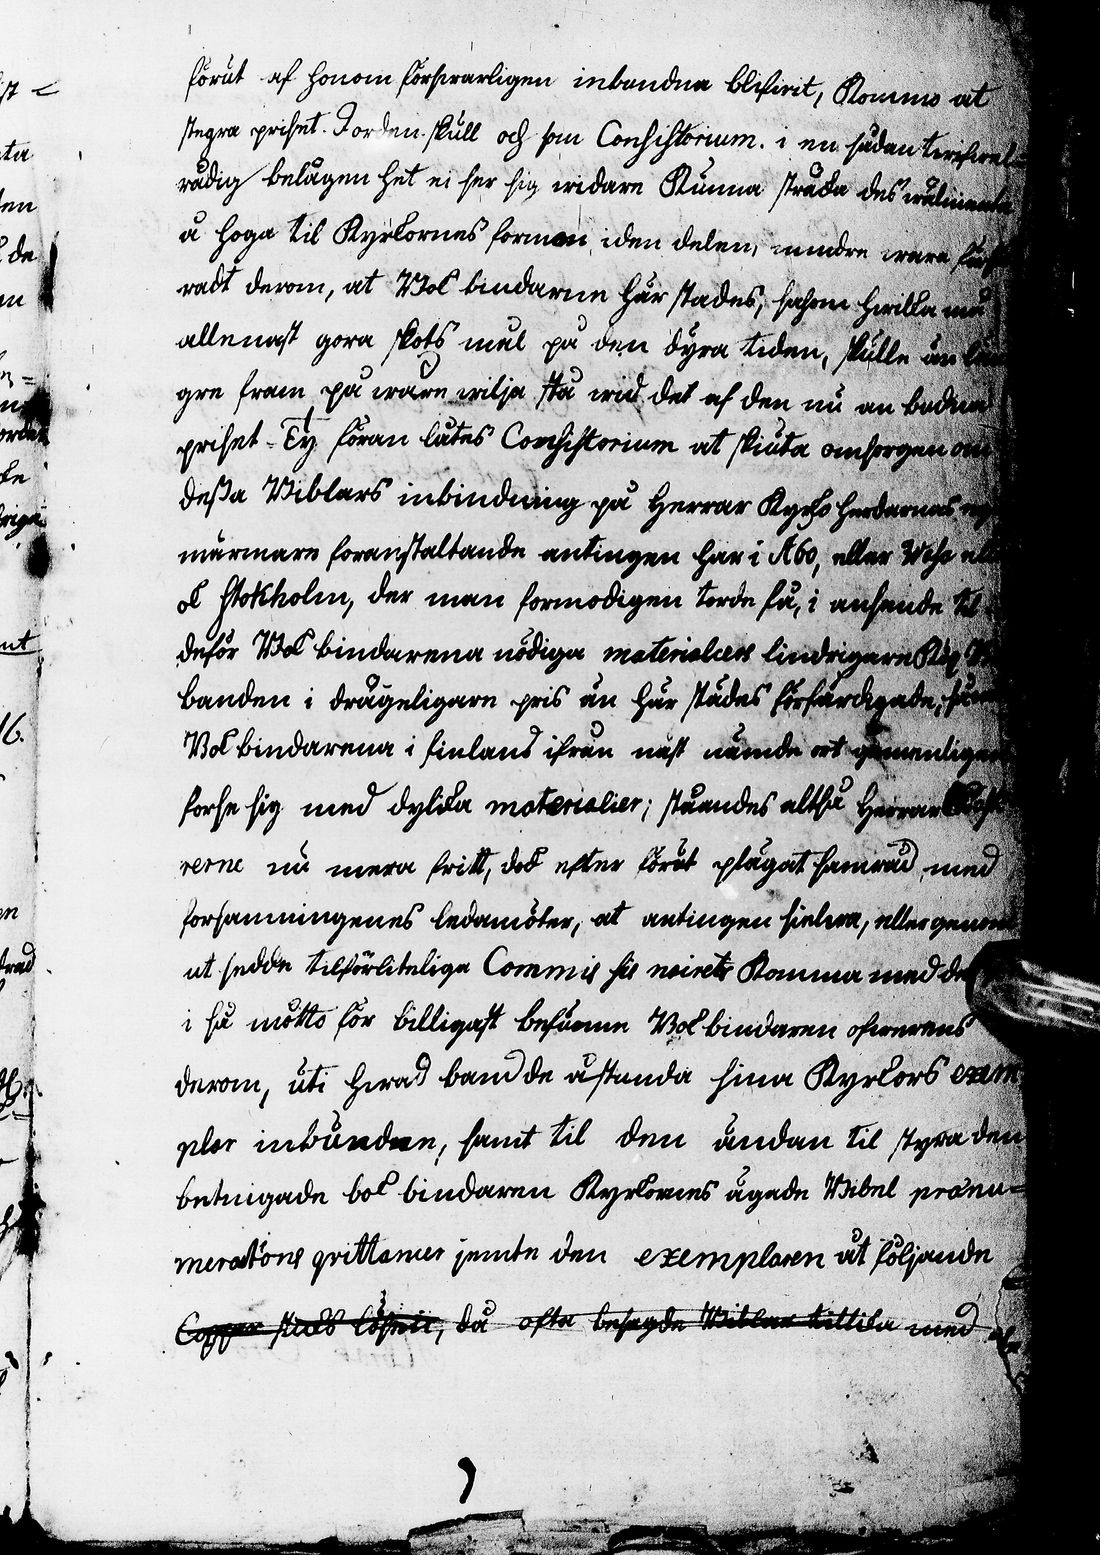 förut af honom försvarligen inbundna blifvit, Komma at
stegra priset. Fordenskull och som Consistorium i en sådan
rådig belägenhet ei ser sig vidare Kunna sträcka des
å hoga til Kyrkornes formon iden delen, mindre vara
radt derom, at Bok bindarne här stades, såsom hvilka nu
allenast gora skots mål på den dyra tiden, skulle än
gre fram på waren wilja stå wid det af den nu an budna
priset. Ty föran låtes Consistorium at skiuta omsorgen om
dessa Biblars inbindning på Herrar Kyrko herdarnas
närmare foranstaltande antingen har i Åbo, eller
ok Stokholm, der man formodigen torde få, i anseende til
defór Bok bindarena nödiga materialiers lindrigare Köp
banden i drägeligare pris än här städes förfärdigade,
Bok bindarena i finland ifrån näst nämde ort gemenligen
forse sig med dylika materialier; ståendes altså Herrar
rerne nu mera fritt, dock efter förut plägat samråd med
forsamningenes ledamöter, at antingen sielwa, eller genom
ut sedde tilförliteliga Commis Komma med
i så motto för billigast befunne Bok bindaren ofwerens
derom, uti hwad band de åstunda sina Kyrkors exem
plar inbundne, samt til den ändan til styra den
betingade bok bindaren Kyrkornes ägade Bibel prænu=
merations qvittancer jemte den exemplaren åt följande
då ofta besagde Biblar med